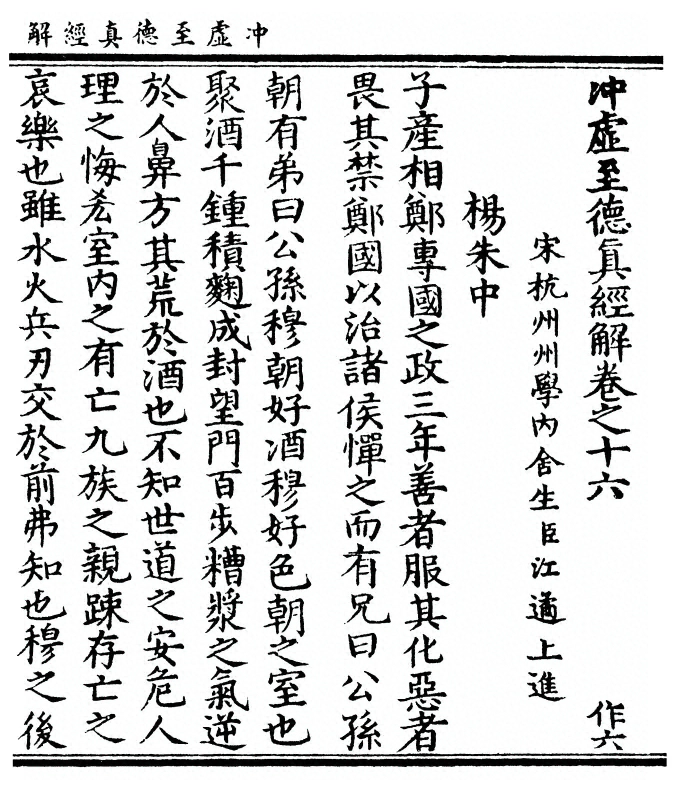 冲虛至德真經解
冲虛至德眞經解卷之十六 作六
宋杭州州學內舍生臣江遹上進
楊朱中
子產相鄭專國之政三年善者服其化惡者
畏其禁鄭國以治諸侯憚之而有兄曰公孫
朝有弟曰公孫穆朝好酒穆好色朝之室也
聚酒千鍾積麴成封望門百步糟漿之氣逆
於人鼻方其荒於酒也不知世道之安危人
理之悔吝室內之有亡九族之親踈存亡之
哀樂也雖水火兵刃交於前弗知也穆之後